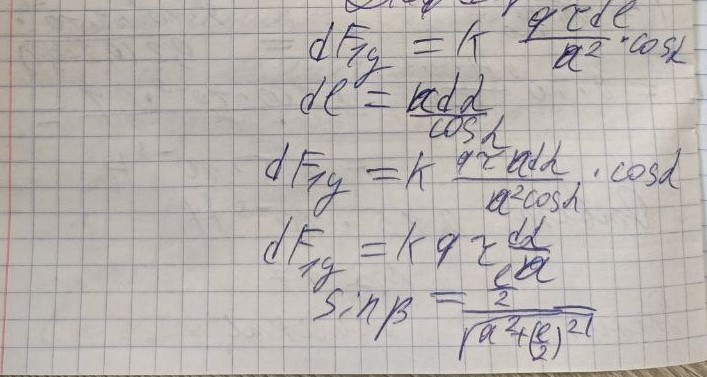 dF₁y = k qτdl/a² · cosα
dl = adα/cosα
dF₁y = k qτadα/a²cosα · cosα
dF₁y = kqτ dα/a
sinβ = (l/2)/√(a²+(l/2)²)